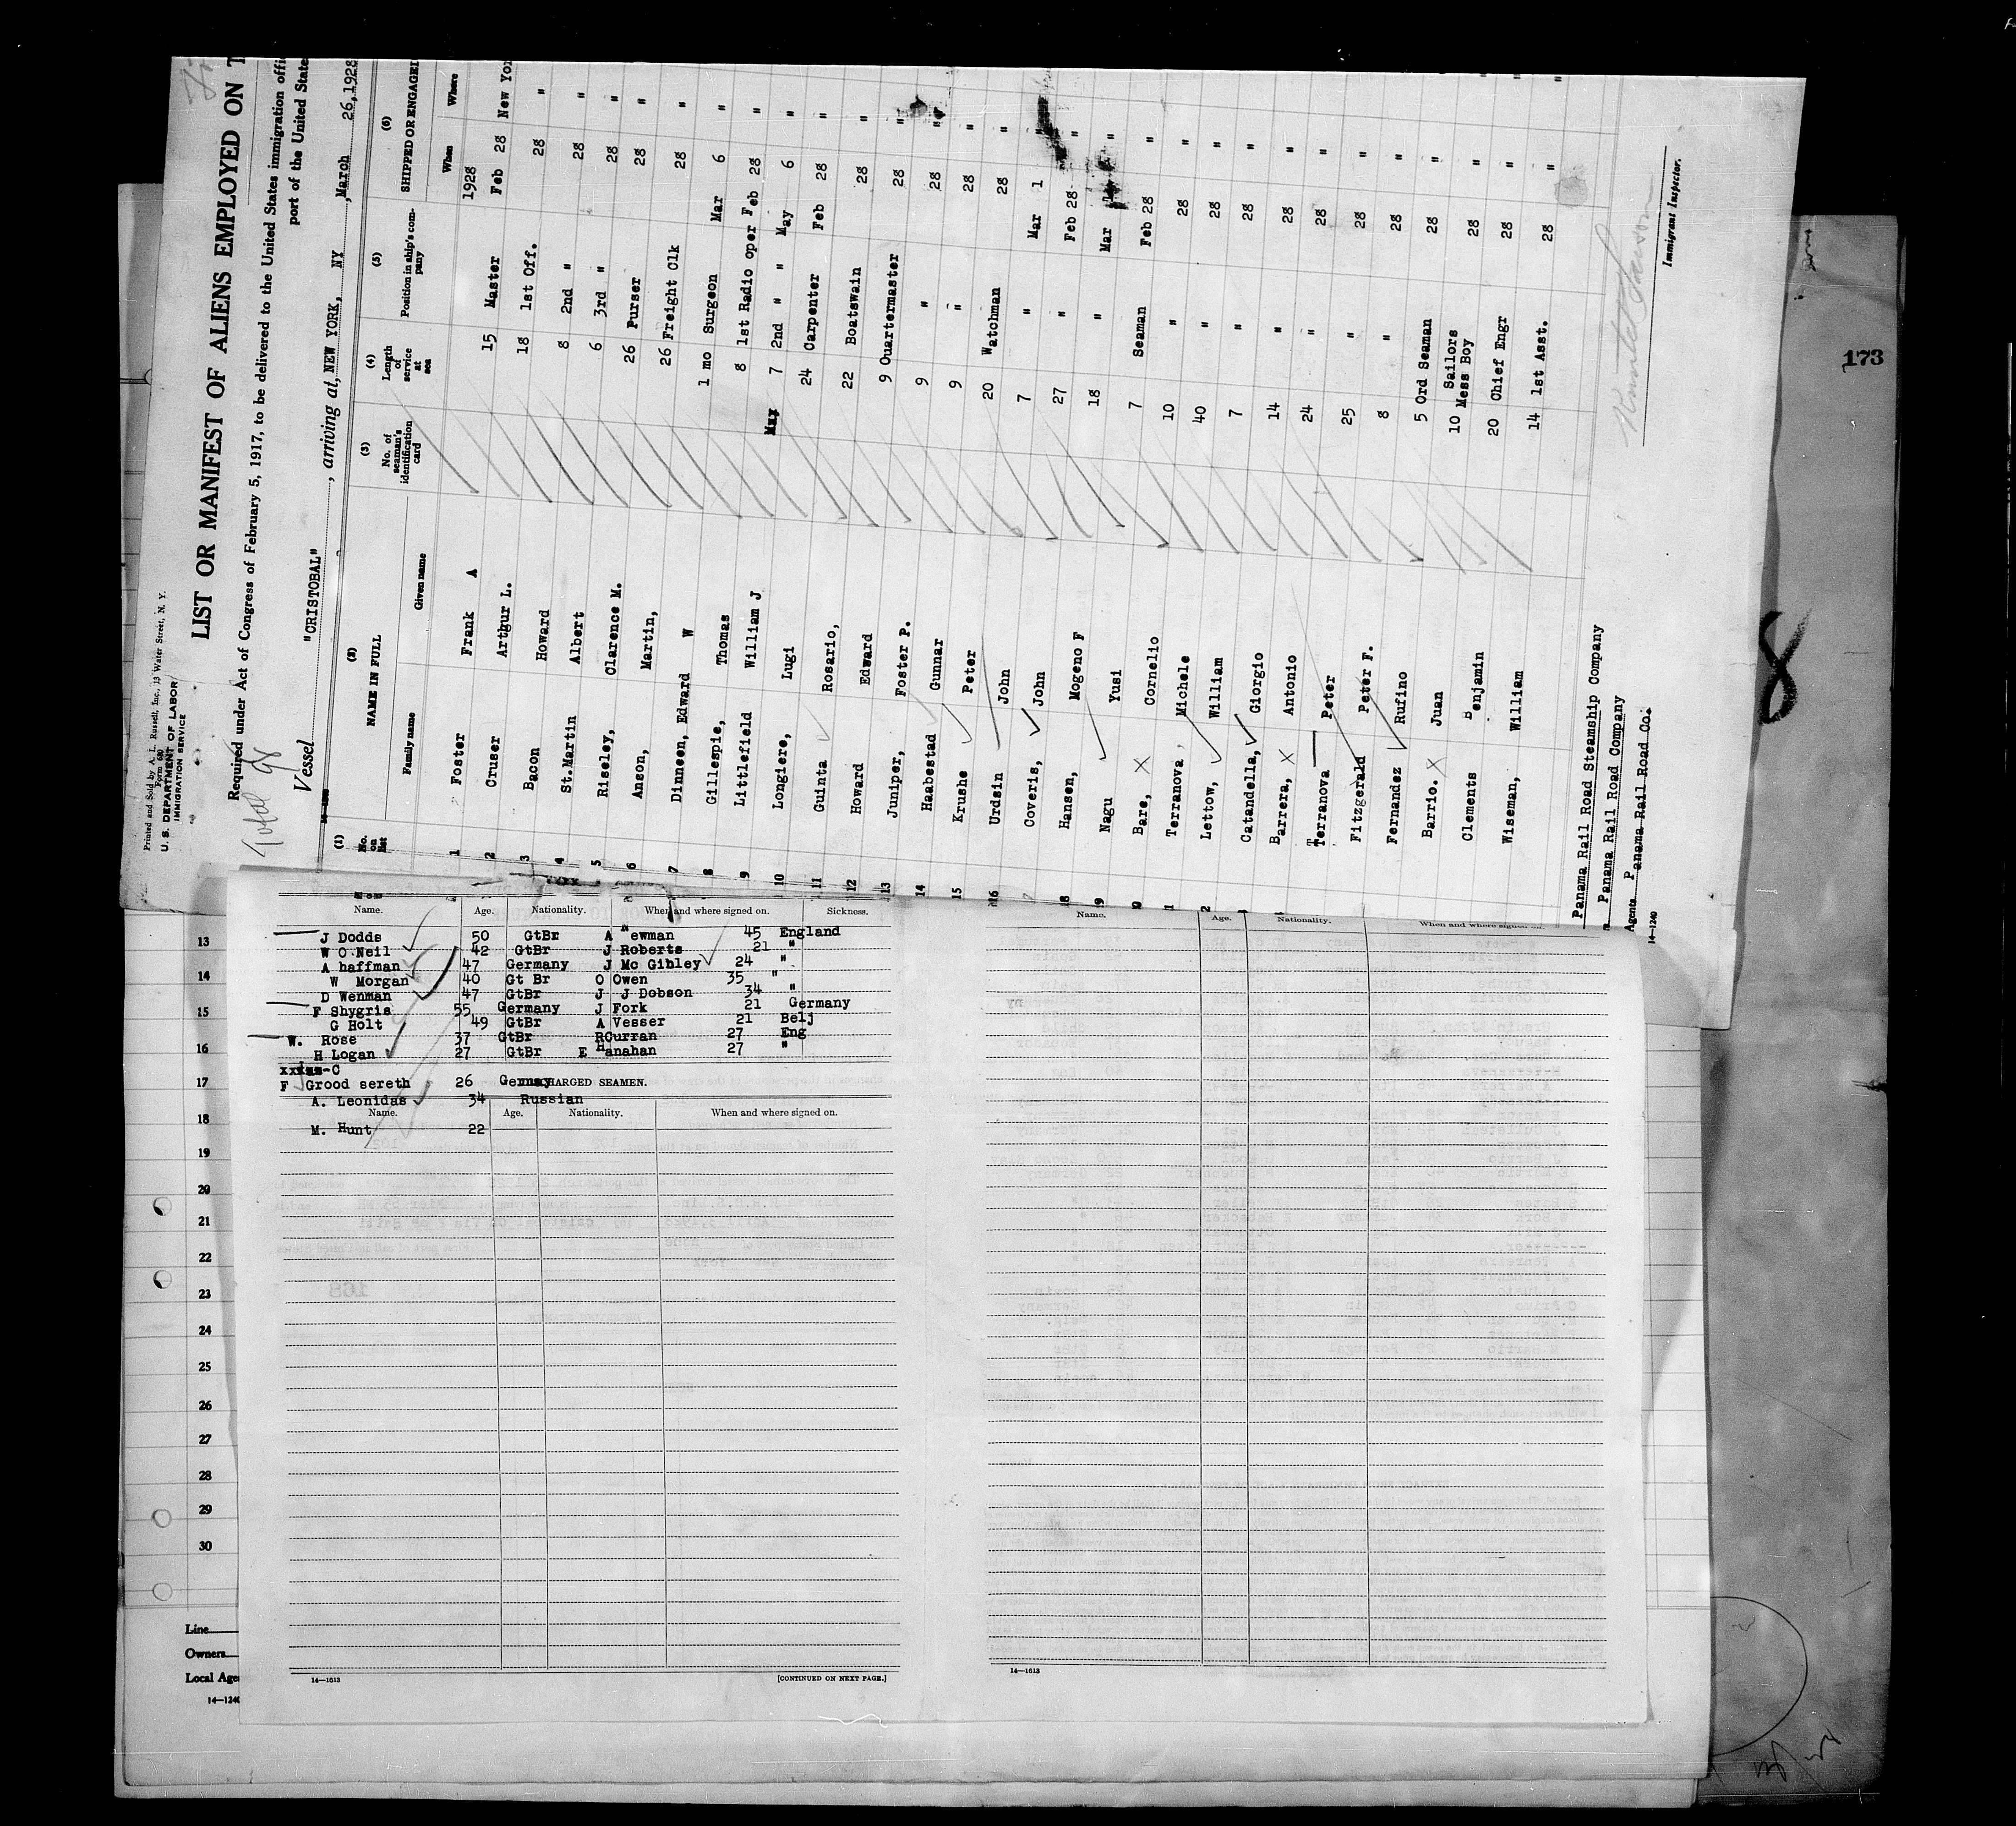 Printed and Sold by A. L. Russell, Inc., 13 Water Street, N. Y.
Form 680
U. S. DEPARTMENT OF LABOR
IMMIGRATION SERVICE
LIST OR MANIFEST OF ALIENS EMPLOYED ON T
Required under Act of Congress of February 5, 1917, to be delivered to the United States immigration offi
port of the United State
Total
Vessel "CRISTOBAL", arriving at, NEW YORK, NY, March 26,1928
(1) (2) (3) (4) (5) (6)
No. on list NAME IN FULL No. of seaman's identification card Length of service at sea Position in ship's company SHIPPED OR ENGAGED
Family name Given name When Where
1928
1 Foster Frank A 15 Master Feb 28 New Yor
2 Cruser Arthur L. 18 1st Off. 28 "
3 Bacon Howard 8 2nd " 28 "
4 St.Martin Albert 6 3rd " 28 "
5 Riseley, Clarence M. 26 Purser 28 "
6 Anson, Martin, 26 Freight Clk 28 "
7 Dinneen, Edward W 1 mo Surgeon Mar 6 "
8 Gillespie, Thomas 8 1st Radio oper Feb 28 "
9 Littlefield William J 7 2nd " " May 6 "
10 Longiere, Lugi 24 Carpenter Feb 28 "
11 Guinta Rosario, 22 Boatswain 28 "
12 Howard Edward 9 Quartermaster 28 "
13 Juniper, Foster P. 9 " 28 "
14 Haabestad Gunnar 9 " 28 "
15 Krushe Peter 20 Watchman 28 "
16 Urdsin John 7 " Mar 1 "
Coveris, John 27 " Feb 28 "
18 Hansen, Mogeno F 18 " Mar "
9 Nagu Yusi 7 Seaman Feb 28 "
0 Bare, X Cornelio 10 " 28 "
1 Terranova, Michele 40 " 28 "
2 Lettow, William 7 " 28 "
Catandella, Giorgio 14 " 28 "
Barrera, X Antonio 24 " 28 "
Terranova Peter 25 " 28 "
Fitzgerald Peter F. 8 " 28 "
Fernandez Rufino 5 Ord Seaman 28 "
Barrio. X Juan 10 Sailors Mess Boy 28 "
Clements Benjamin 20 Chief Engr 28 "
Wiseman, William 14 1st Asst. 28 "
Panama Rail Road Steamship Company
Panama Rail Road Company
Agents Panama Rail Road Co.
14—1240
Immigrant Inspector.
173
8
Name. Age. Nationality. When and where signed on. Sickness.
J Dodds 50 GtBr A Newman 45 England
W O Neil 42 GtBr J Roberts 21 "
A haffman 47 Germany J Mc Gibley 24 "
W Morgan 40 Gt Br O Owen 35 "
D Wenman 47 GtBr J J Dobson 34 "
F Shygris 55 Germany J Fork 21 Germany
G Holt 49 GtBr A Vesser 21 Belj
W. Rose 37 GtBr RCurran 27 Eng
H Logan 27 GtBr E Hanahan 27 "
F Grood sereth 26 Germay
CHARGED SEAMEN.
A. Leonidas 34 Russian
Name. Age. Nationality. When and where signed on.
M. Hunt 22
14—1613
[CONTINUED ON NEXT PAGE.]
Name. Age. Nationality. When and where signed
14—1613
13
14
15
16
17
18
19
20
21
22
23
24
25
26
27
28
29
30
Line
Owners
Local Age
14—1240